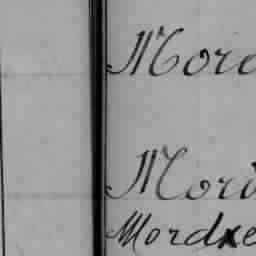 Mord
Mord
Mordxe